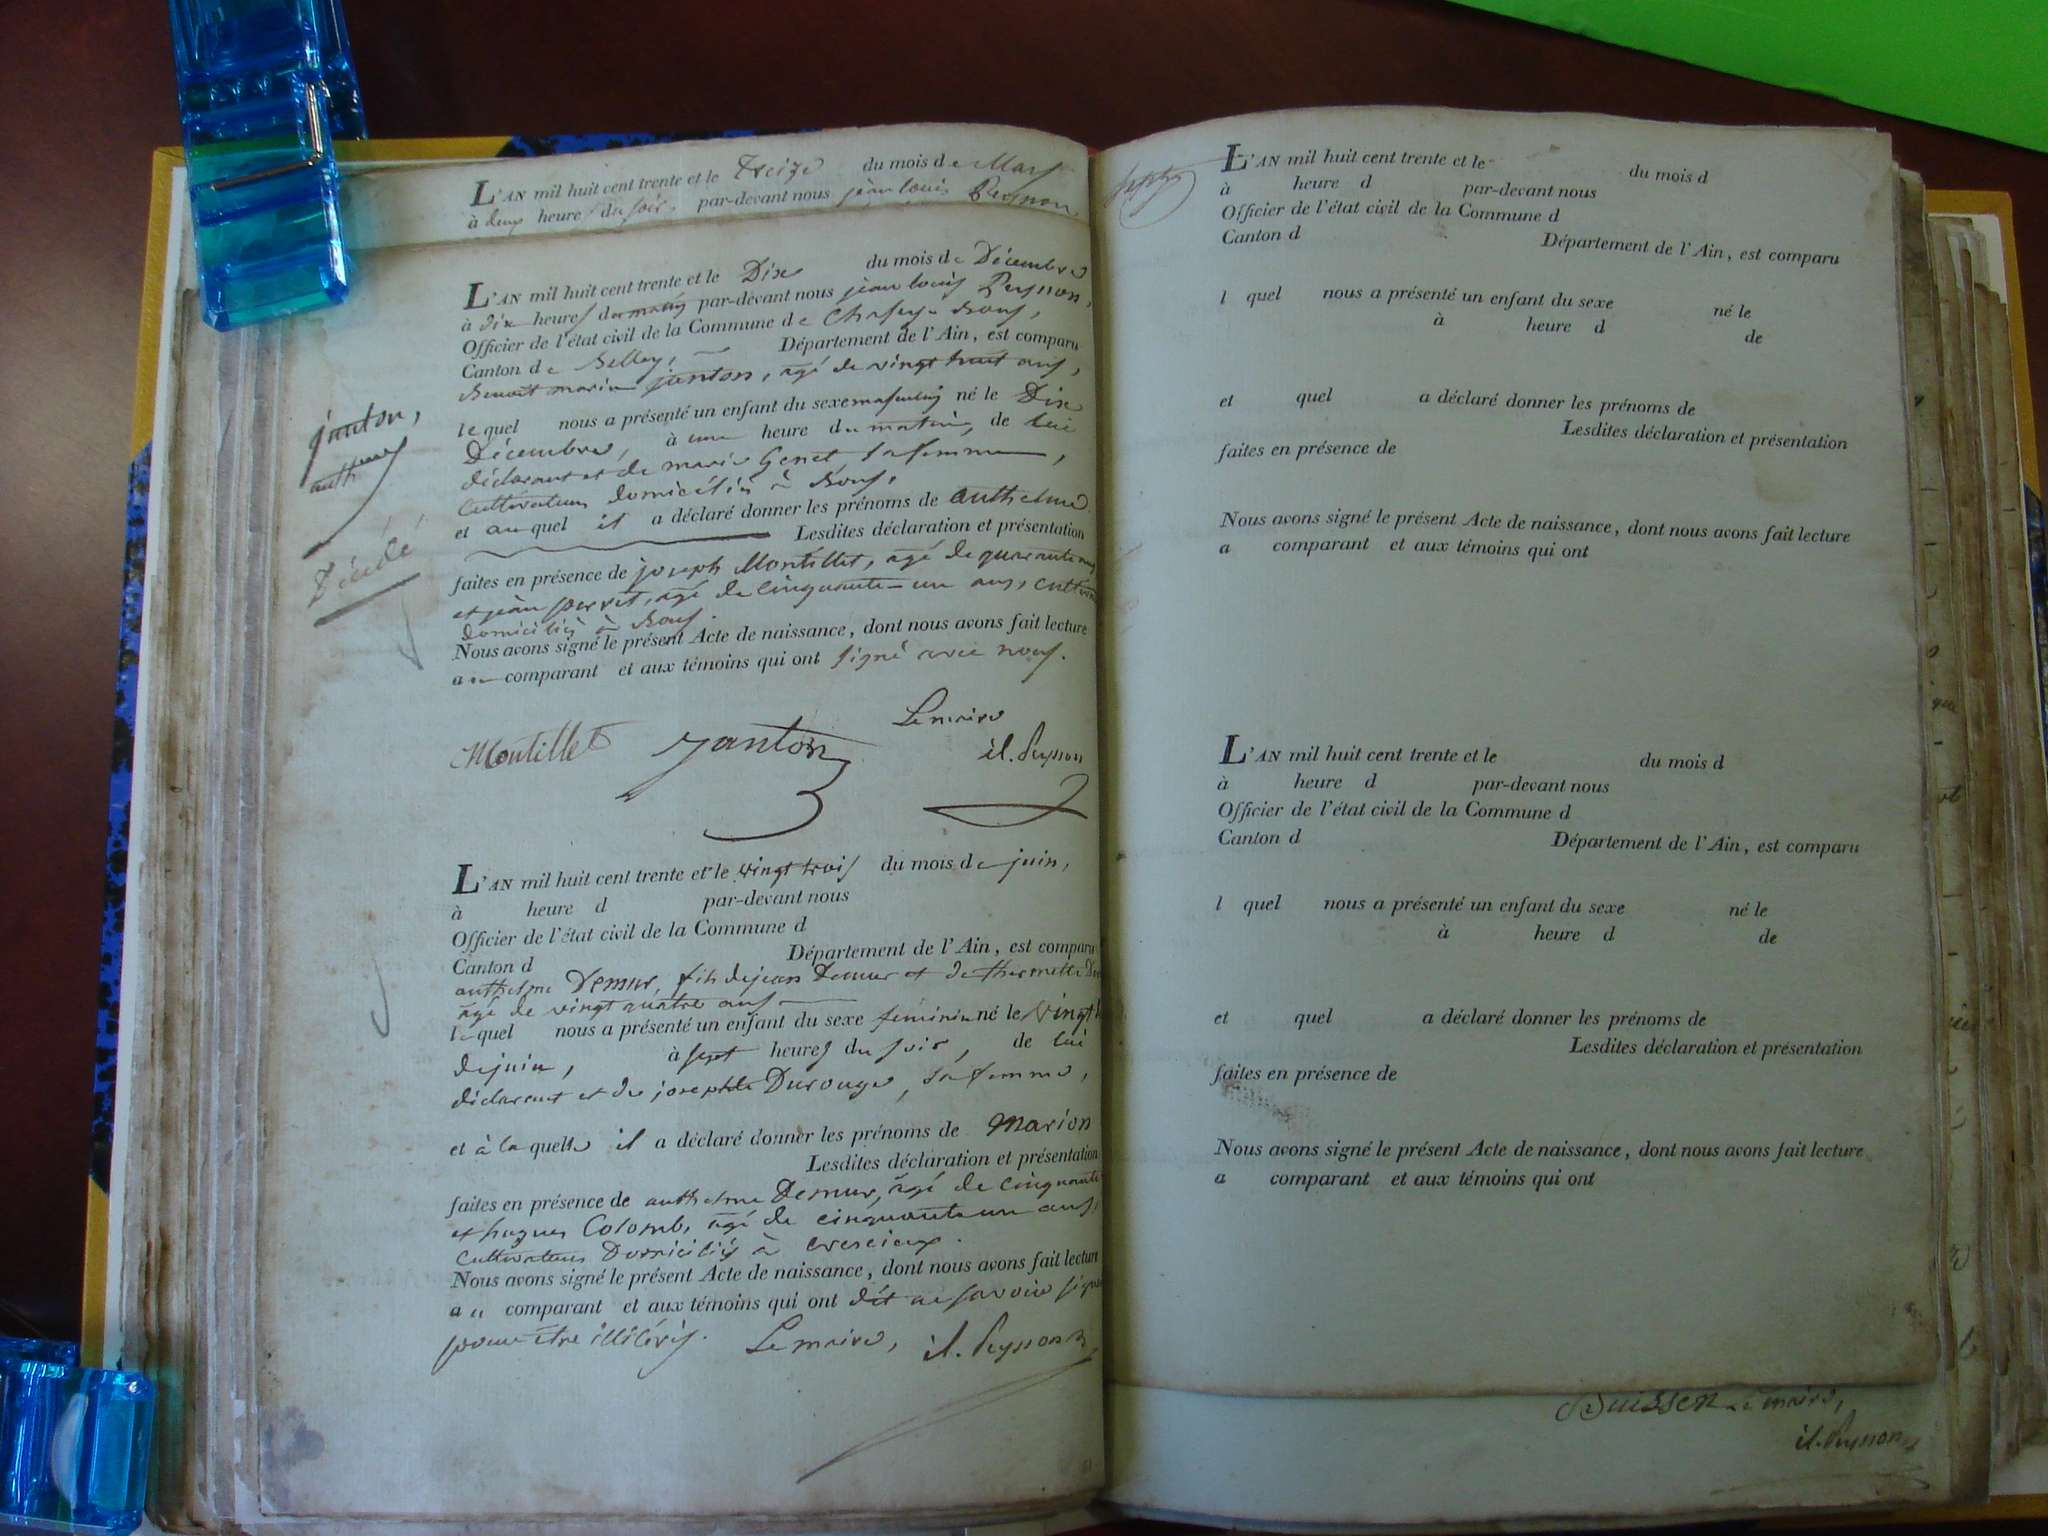 L'AN mil huit cent trente et le Treize du mois de Mars
à deux heures du soir, par-devant nous jean louis Peysson
L'AN mil huit cent trente et le Dix du mois de Décembre
à dix heures du matin par-devant nous jean louis Peysson,
Officier de l'état civil de la Commune de
Canton de Belley, Département de l'Ain, est comparu
Benoit marie janton, agé de vingt huit ans,
janton,
le quel nous a présenté un enfant du sexe masculin né le Dix
Décembre, à une heure du matin, de lui
déclarant et de marie Genet sa femme,
cultivateurs domiciliés à
et au quel il a déclaré donner les prénoms de anthelme
Lesdites déclaration et présentation
Décédé
faites en présence de joseph Montillet, agé de quarante ans
et jean perret, agé de cinquante-un ans,
domiciliés à
Nous avons signé le présent Acte de naissance, dont nous avons fait lecture
au comparant et aux témoins qui ont signé avec nous.
Montillet janton Le maire
il. Peysson
L'AN mil huit cent trente et le vingt trois du mois de juin,
à heure d par-devant nous
Officier de l'état civil de la Commune d
Canton d Département de l'Ain, est comparu
anthelme Demur, fils de jean Demur et de
agé de vingt quatre ans
le quel nous a présenté un enfant du sexe féminin né le vingt
de juin, à sept heures du soir, de lui
déclarant et de josephte Durouge, sa femme,
et à la quelle il a déclaré donner les prénoms de Marion
Lesdites déclaration et présentation
faites en présence de anthelme Demur, agé de cinquante
et hugues Colomb, agé de cinquante un ans,
cultivateurs Domiciliés à
Nous avons signé le présent Acte de naissance, dont nous avons fait lecture
au comparant et aux témoins qui ont dit ne savoir
pour être illitérés. Le maire, il. Peysson
L'AN mil huit cent trente et le du mois d
à heure d par-devant nous
Officier de l'état civil de la Commune d
Canton d Département de l'Ain, est comparu
l quel nous a présenté un enfant du sexe né le
à heure d de
et quel a déclaré donner les prénoms de
Lesdites déclaration et présentation
faites en présence de
Nous avons signé le présent Acte de naissance, dont nous avons fait lecture
a comparant et aux témoins qui ont
L'AN mil huit cent trente et le du mois d
à heure d par-devant nous
Officier de l'état civil de la Commune d
Canton d Département de l'Ain, est comparu
l quel nous a présenté un enfant du sexe né le
à heure d de
et quel a déclaré donner les prénoms de
Lesdites déclaration et présentation
faites en présence de
Nous avons signé le présent Acte de naissance, dont nous avons fait lecture
a comparant et aux témoins qui ont
Buisson Le maire,
il. Peysson